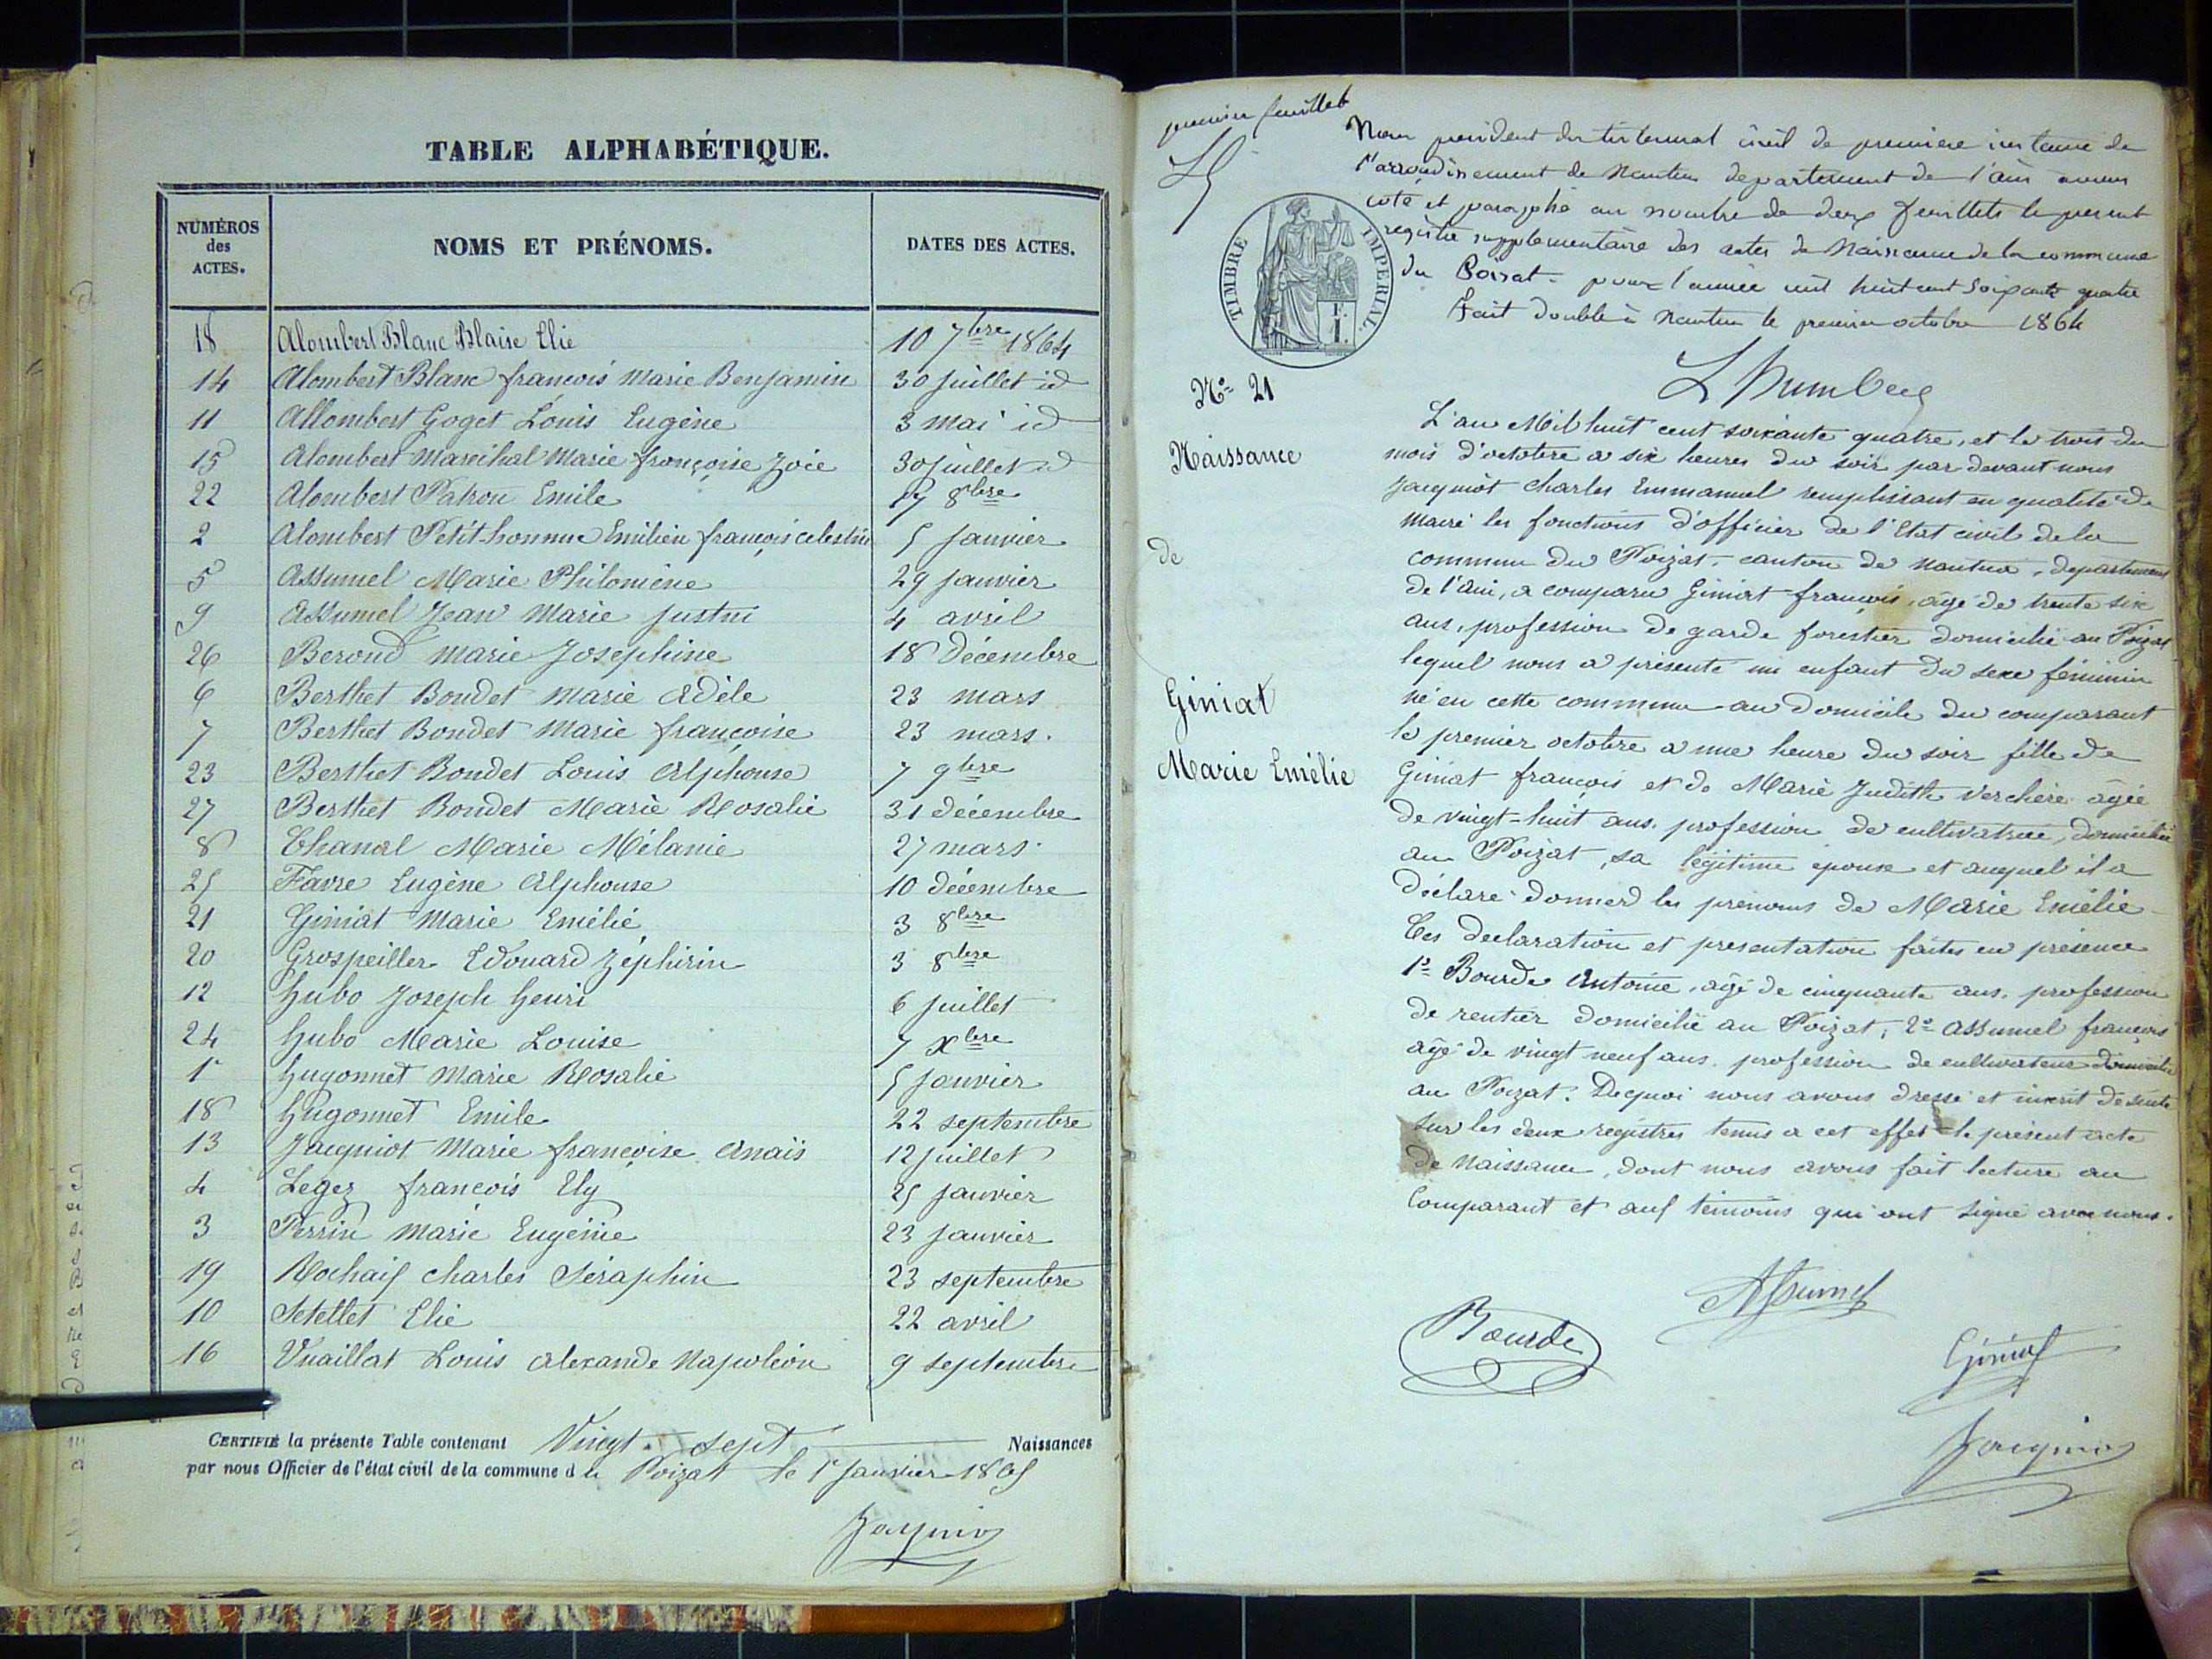 TABLE ALPHABÉTIQUE.
NUMÉROS des ACTES. NOMS ET PRÉNOMS. DATES DES ACTES.
18 Alombert Blanc Blaise Elie 10 7bre 1864
14 Alombert Blanc françois Marie Benjamin 30 juillet id
11 Allombert Goget Louis Eugène 3 mai id
15 Alombert Marechal Marie françoise Zoée 30 juillet id
22 Alombert Patron Emile 17 8bre
2 Alombert Petit-homme Emilien françois celestin 5 Janvier
5 Assumel Marie Philomène 29 janvier
9 Assumel Jean Marie Justin 4 avril
26 Berond Marie Josephine 18 Décembre
6 Berthet Bondet Marie Adèle 23 mars
7 Berthet Bondet Marie françoise 23 mars.
23 Berthet Bondet Louis Alphonse 7 9bre
27 Berthet Bondet Marie Rosalie 31 décembre
8 Chanal Marie Mélanie 27 mars.
25 Favre Eugène Alphonse 10 décembre
21 Giniat Marie Emélie 3 8bre
20 Grospeiller Edouard Zéphirin 3 8bre
12 hubo Joseph henri 6 juillet
24 hubo Marie Louise 7 Xbre
1r hugonnet Marie Rosalie 5 janvier
18 hugonnet Emile 22 septembre
13 Jacquiot Marie françoise Anaïs 12 juillet
4 Leger françois Ely 25 janvier
3 Perrin Marie Eugénie 23 janvier
19 Rochaix charles Séraphin 23 septembre
10 Setellet Elie 22 avril
16 Vuaillat Louis Alexande Napoléon 9 septembre
CERTIFIÉ la présente Table contenant Vingt-sept Naissances
par nous Officier de l'état civil de la commune du Poizat le 1r Janvier 1865
Jacquiot
premier feuillet
Nous president du tribunal civil de premiere instance de
l'arrondissement de Nantua departement de l'ain avons
coté et paraphé au nombre de deux feuillets le present
registre supplementaire des actes de Naissance de la commune
du Poisat - pour l'année mil huit cent soixante quatre
Fait double à Nantua le premier octobre 1864
TIMBRE IMPÉRIAL.
N° 21
Naissance
de
Giniat
Marie Emélie
L'an Mil huit cent soixante quatre, et le trois du
mois d'octobre a six heures du soir par devant nous
Jacquiot charles Emmanuel remplissant en qualité de
Maire les fonctions d'officier de l'Etat civil de la
commune du Poizat, canton de Nantua, departement
de l'ain, a comparu Giniat françois, âgé de trente six
ans, profession de garde forestier domicilié au Poizat
lequel nous a présenté un enfant du sexe féminin
né en cette commune au domicile du comparant
le premier octobre a une heure du soir fille de
Giniat françois et de Marie Judith Verchère âgée
de vingt-huit ans, profession de cultivatrice, domiciliée
au Poizat, sa légitime épouse et auquel il a
déclaré donner les prénoms de Marie Emélie
Ces declaration et presentation faites en présence
1° Bourde Antoine, âgé de cinquante ans, profession
de rentier domicilié au Poizat, 2° Assumel françois
âgé de vingt neuf ans, profession de cultivateur domicilié
au Poizat. Dequoi nous avons dressé et inscrit de suite
sur les deux registres tenus a cet effet le présent acte
de Naissance, dont nous avons fait lecture au
Comparant et aux témoins qui ont signé avec nous.
Assumel
Bourde
Giniat
Jacquiot